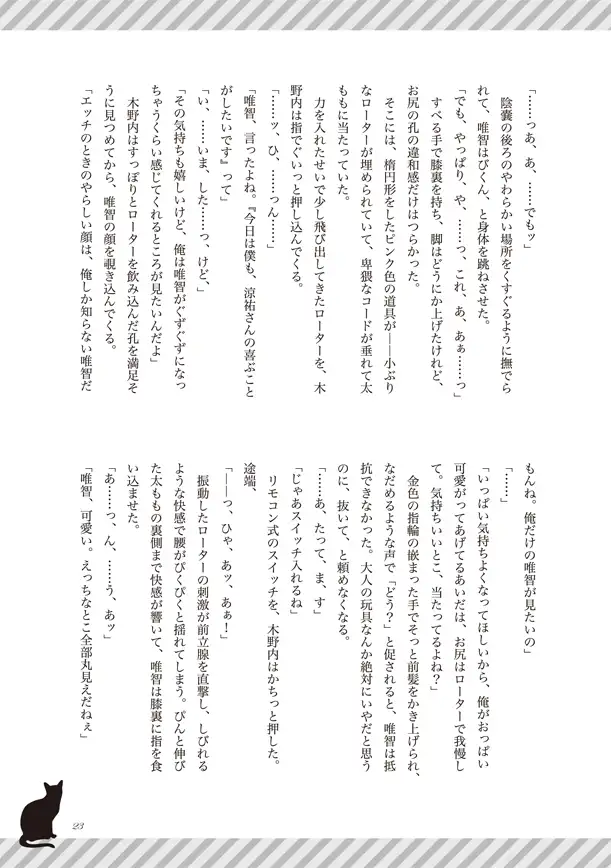 「……っあ、あ、……でもッ」
陰嚢の後ろのやわらかい場所をくすぐるように撫でら
れて、唯智はびくん、と身体を跳ねさせた。
「でも、やっぱり、や、……っ、これ、あ、あぁ……っ」
すべる手で膝裏を持ち、脚はどうにか上げたけれど、
お尻の孔の違和感だけはつらかった。
そこには、楕円形をしたピンク色の道具が――小ぶり
なローターが埋められていて、卑猥なコードが垂れて太
ももに当たっていた。
力を入れたせいで少し飛び出してきたローターを、木
野内は指でぐいっと押し込んでくる。
「……ッ、ひ、……っん、……」
「唯智、言ったよね。『今日は僕も、涼祐さんの喜ぶこと
がしたいです』って」
「い、……いま、した……っ、けど、」
「その気持ちも嬉しいけど、俺は唯智がぐずぐずになっ
ちゃうくらい感じてくれるところが見たいんだよ」
木野内はすっぽりとローターを飲み込んだ孔を満足そ
うに見つめてから、唯智の顔を覗き込んでくる。
「エッチのときのやらしい顔は、俺しか知らない唯智だ
もんね。俺だけの唯智が見たいの」
「……」
「いっぱい気持ちよくなってほしいから、俺がおっぱい
可愛がってあげてるあいだは、お尻はローターで我慢し
て。気持ちいいとこ、当たってるよね？」
金色の指輪の嵌まった手でそっと前髪をかき上げられ、
なだめるような声で「どう？」と促されると、唯智は抵
抗できなかった。大人の玩具なんか絶対にいやだと思う
のに、抜いて、と頼めなくなる。
「……あ、たって、ま、す」
「じゃあスイッチ入れるね」
リモコン式のスイッチを、木野内はかちっと押した。
途端、
「――っ、ひゃ、あッ、あぁ！」
振動したローターの刺激が前立腺を直撃し、しびれる
ような快感で腰がぴくぴくと揺れてしまう。ぴんと伸び
た太ももの裏側まで快感が響いて、唯智は膝裏に指を食
い込ませた。
「あ……っ、ん、……う、あッ」
「唯智、可愛い。えっちなとこ全部丸見えだねぇ」
23